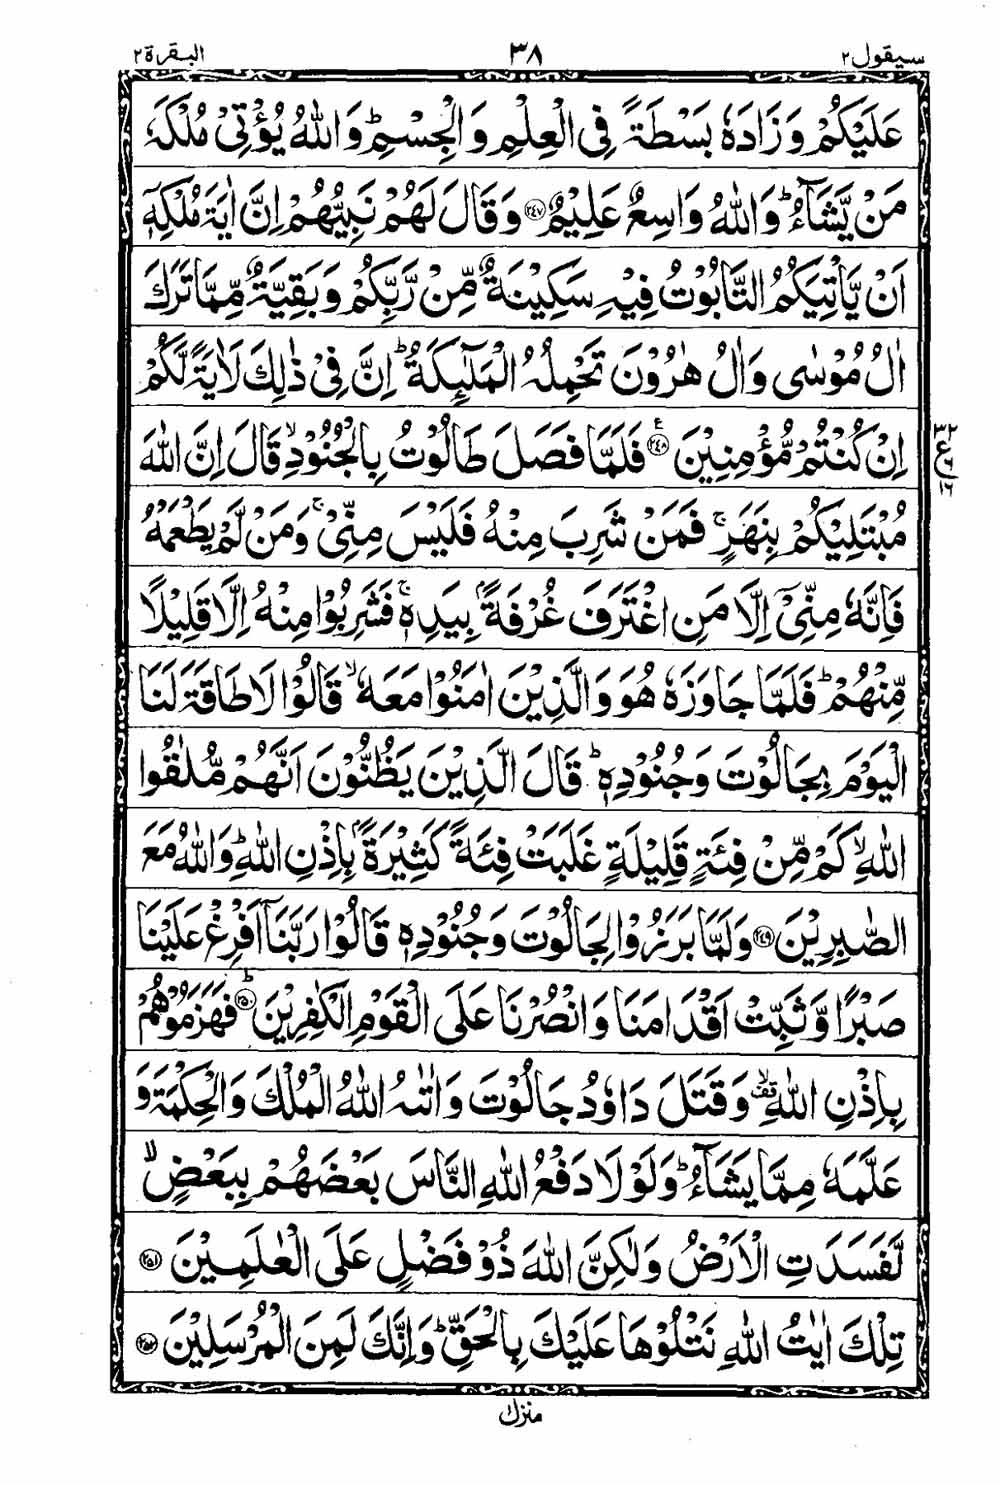 سيقول٢ ٣٨ البقرة٢
عَلَيْكُمْ وَزَادَهٗ بَسْطَةً فِی الْعِلْمِ وَالْجِسْمِ ؕ وَاللّٰهُ يُؤْتِیْ مُلْكَهٗ
مَنْ يَّشَآءُ ؕ وَاللّٰهُ وَاسِعٌ عَلِيْمٌ ﴿۲۴۷﴾ وَقَالَ لَهُمْ نَبِيُّهُمْ اِنَّ اٰيَةَ مُلْكِهٖۤ
اَنْ يَّاْتِيَكُمُ التَّابُوْتُ فِيْهِ سَكِيْنَةٌ مِّنْ رَّبِّكُمْ وَبَقِيَّةٌ مِّمَّا تَرَكَ
اٰلُ مُوْسٰی وَاٰلُ هٰرُوْنَ تَحْمِلُهُ الْمَلٰٓئِكَةُ ؕ اِنَّ فِیْ ذٰلِكَ لَاٰيَةً لَّكُمْ
اِنْ كُنْتُمْ مُّؤْمِنِيْنَ ﴿۲۴۸﴾ ع فَلَمَّا فَصَلَ طَالُوْتُ بِالْجُنُوْدِ ۙ قَالَ اِنَّ اللّٰهَ
٣٢
ع
٦
١٦
مُبْتَلِيْكُمْ بِنَهَرٍ ۚ فَمَنْ شَرِبَ مِنْهُ فَلَيْسَ مِنِّیْ ۚ وَمَنْ لَّمْ يَطْعَمْهُ
فَاِنَّهٗ مِنِّیْۤ اِلَّا مَنِ اغْتَرَفَ غُرْفَةًۢ بِيَدِهٖ ۚ فَشَرِبُوْا مِنْهُ اِلَّا قَلِيْلًا
مِّنْهُمْ ؕ فَلَمَّا جَاوَزَهٗ هُوَ وَالَّذِيْنَ اٰمَنُوْا مَعَهٗ ۙ قَالُوْا لَا طَاقَةَ لَنَا
الْيَوْمَ بِجَالُوْتَ وَجُنُوْدِهٖ ؕ قَالَ الَّذِيْنَ يَظُنُّوْنَ اَنَّهُمْ مُّلٰقُوا
اللّٰهِ ۙ كَمْ مِّنْ فِئَةٍ قَلِيْلَةٍ غَلَبَتْ فِئَةً كَثِيْرَةًۢ بِاِذْنِ اللّٰهِ ؕ وَاللّٰهُ مَعَ
الصّٰبِرِيْنَ ﴿۲۴۹﴾ وَلَمَّا بَرَزُوْا لِجَالُوْتَ وَجُنُوْدِهٖ قَالُوْا رَبَّنَاۤ اَفْرِغْ عَلَيْنَا
صَبْرًا وَّثَبِّتْ اَقْدَامَنَا وَانْصُرْنَا عَلَی الْقَوْمِ الْكٰفِرِيْنَ ﴿۲۵۰﴾ ؕ فَهَزَمُوْهُمْ
بِاِذْنِ اللّٰهِ ۙ قف وَقَتَلَ دَاوٗدُ جَالُوْتَ وَاٰتٰىهُ اللّٰهُ الْمُلْكَ وَالْحِكْمَةَ وَ
عَلَّمَهٗ مِمَّا يَشَآءُ ؕ وَلَوْلَا دَفْعُ اللّٰهِ النَّاسَ بَعْضَهُمْ بِبَعْضٍ ۙ
لَّفَسَدَتِ الْاَرْضُ وَلٰكِنَّ اللّٰهَ ذُوْ فَضْلٍ عَلَی الْعٰلَمِيْنَ ﴿۲۵۱﴾
تِلْكَ اٰيٰتُ اللّٰهِ نَتْلُوْهَا عَلَيْكَ بِالْحَقِّ ؕ وَاِنَّكَ لَمِنَ الْمُرْسَلِيْنَ ﴿۲۵۲﴾
منزل